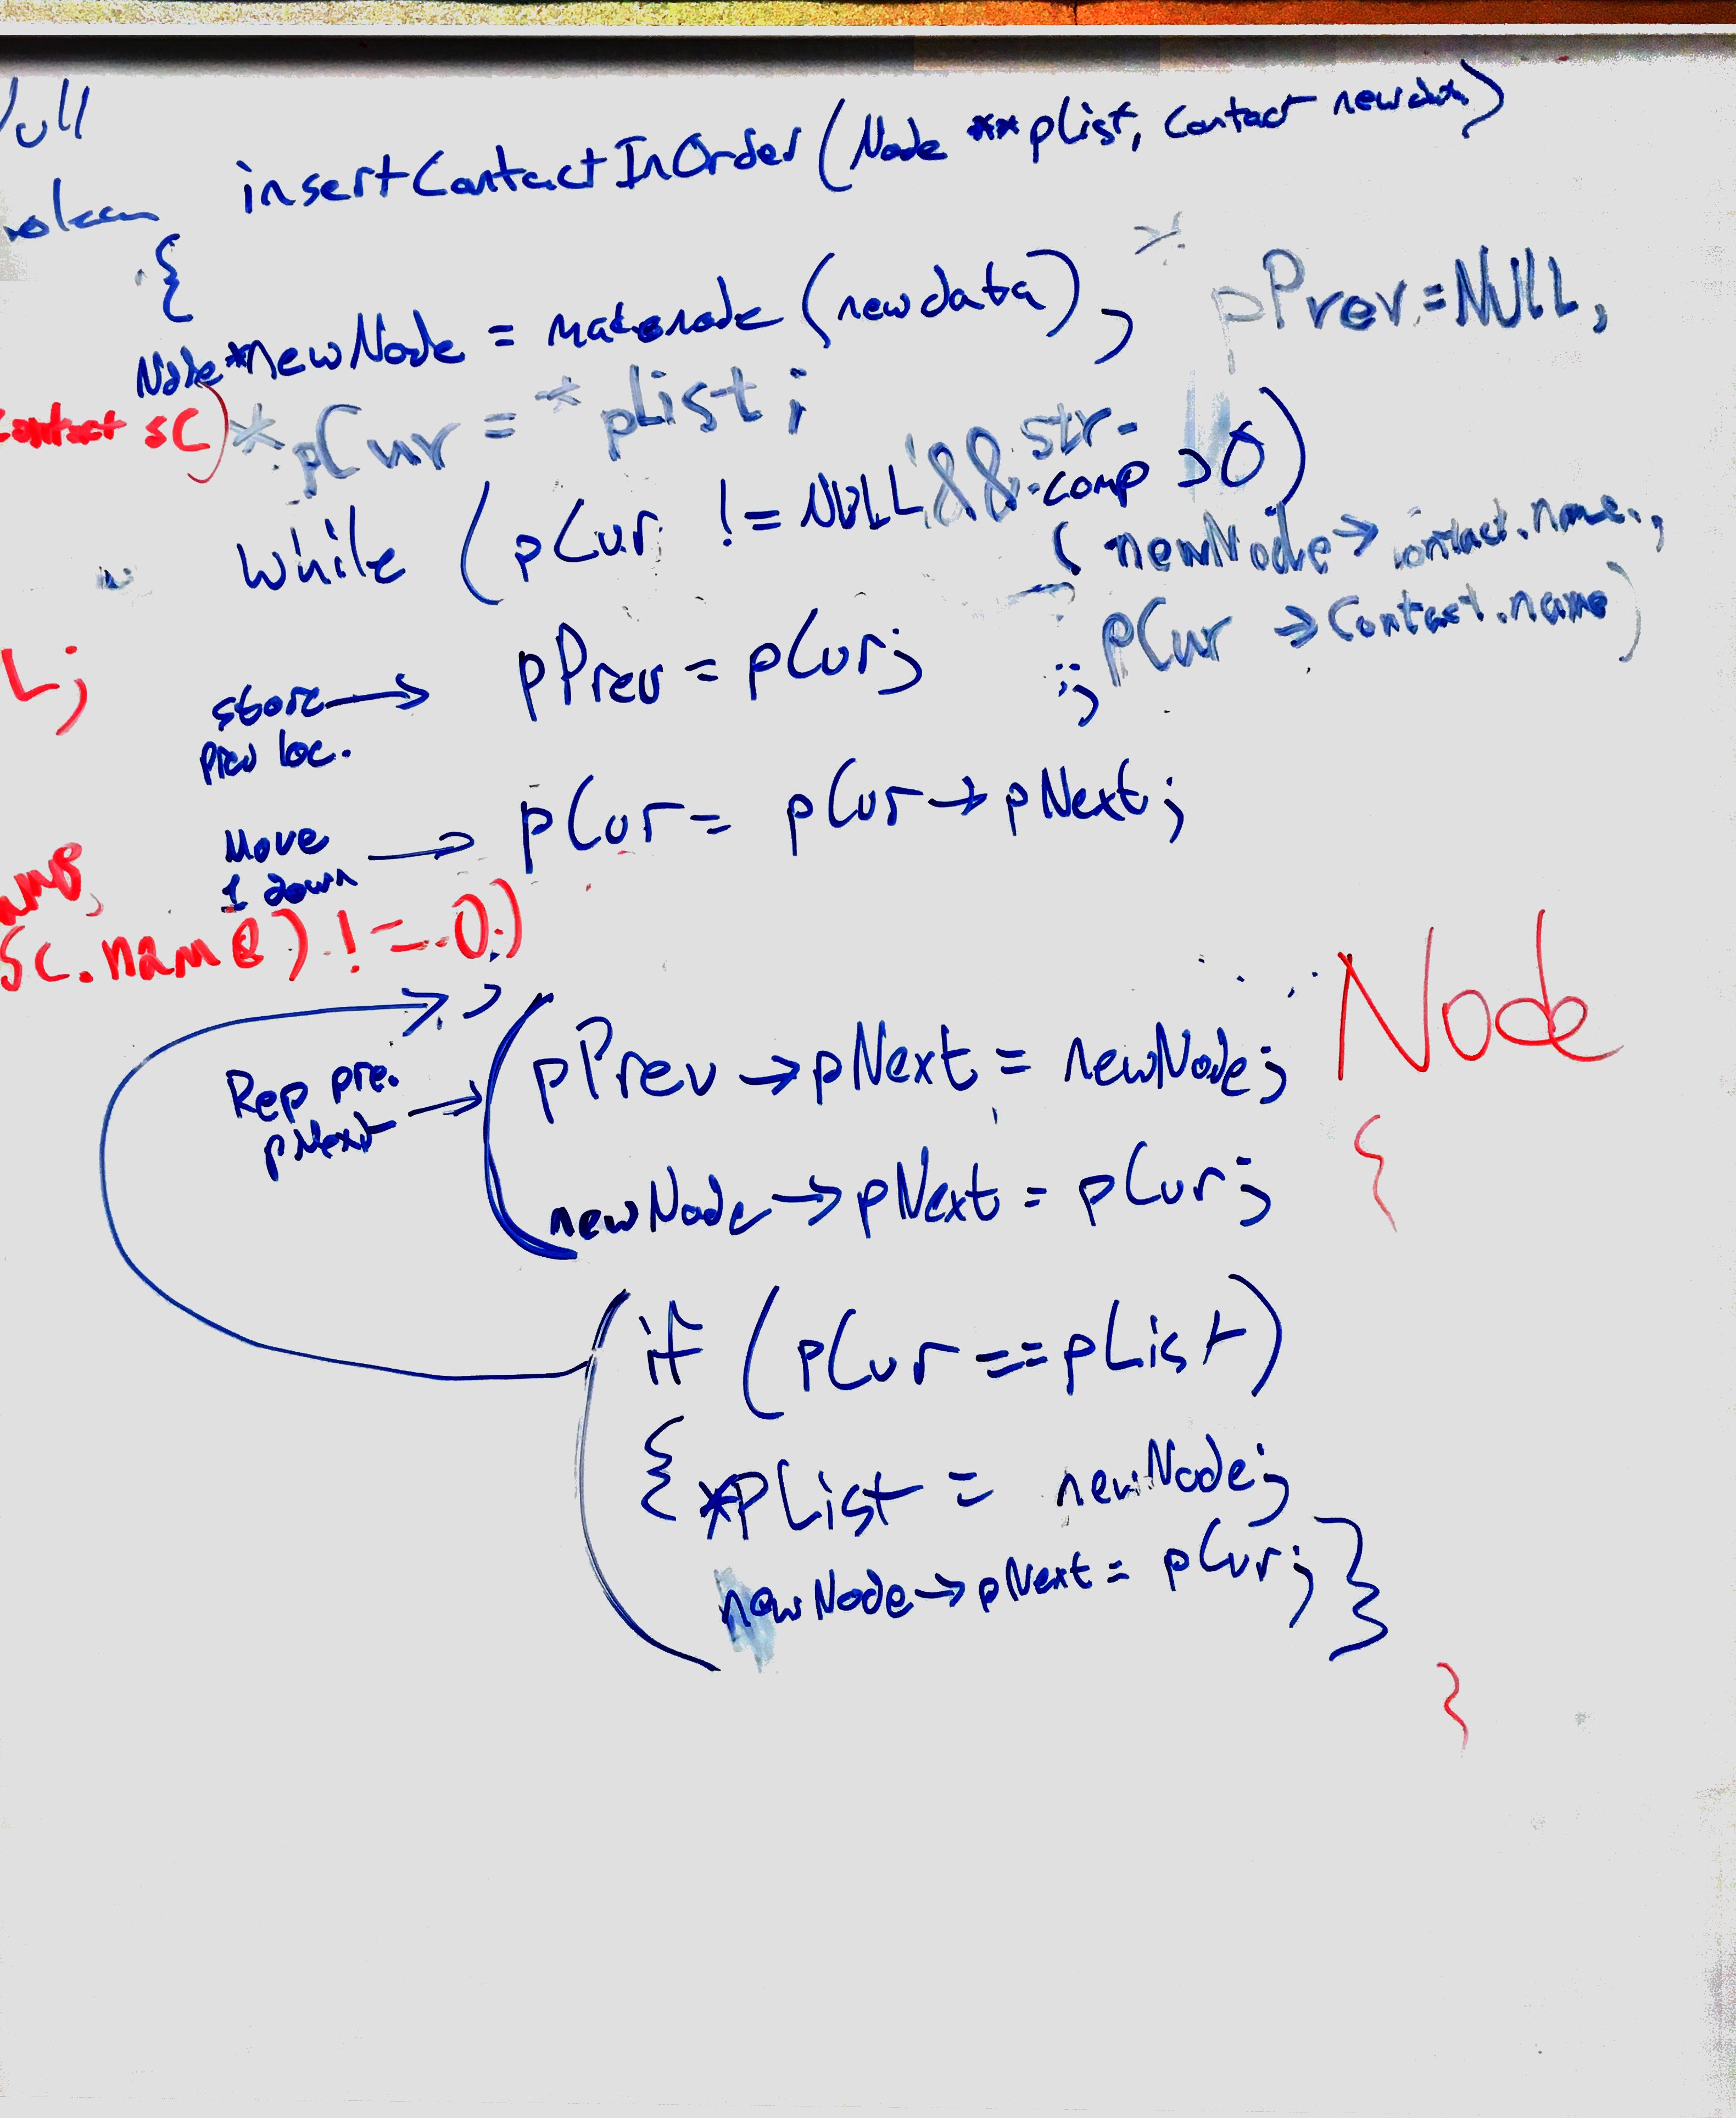 insertContactInOrder(Node **pList, Contact newdata)
{
Node *newNode = makenode (newdata), * pPrev = NULL,
contact sC) * pCur = * pList ;
while (pCur != NULL && str-
-comp >0)
( newNode -> contact.name,
pCur -> Contact.name)
L;
store -> pPrev = pCur;
prev loc.
Move -> pCur = pCur -> pNext;
1 down
sc.name) != 0)
Rep pre. pNext -> pPrev -> pNext = newNode;
newNode -> pNext = pCur;
Node
{
if (pCur == pList)
{ *pList = newNode;
newNode -> pNext = pCur; }
}